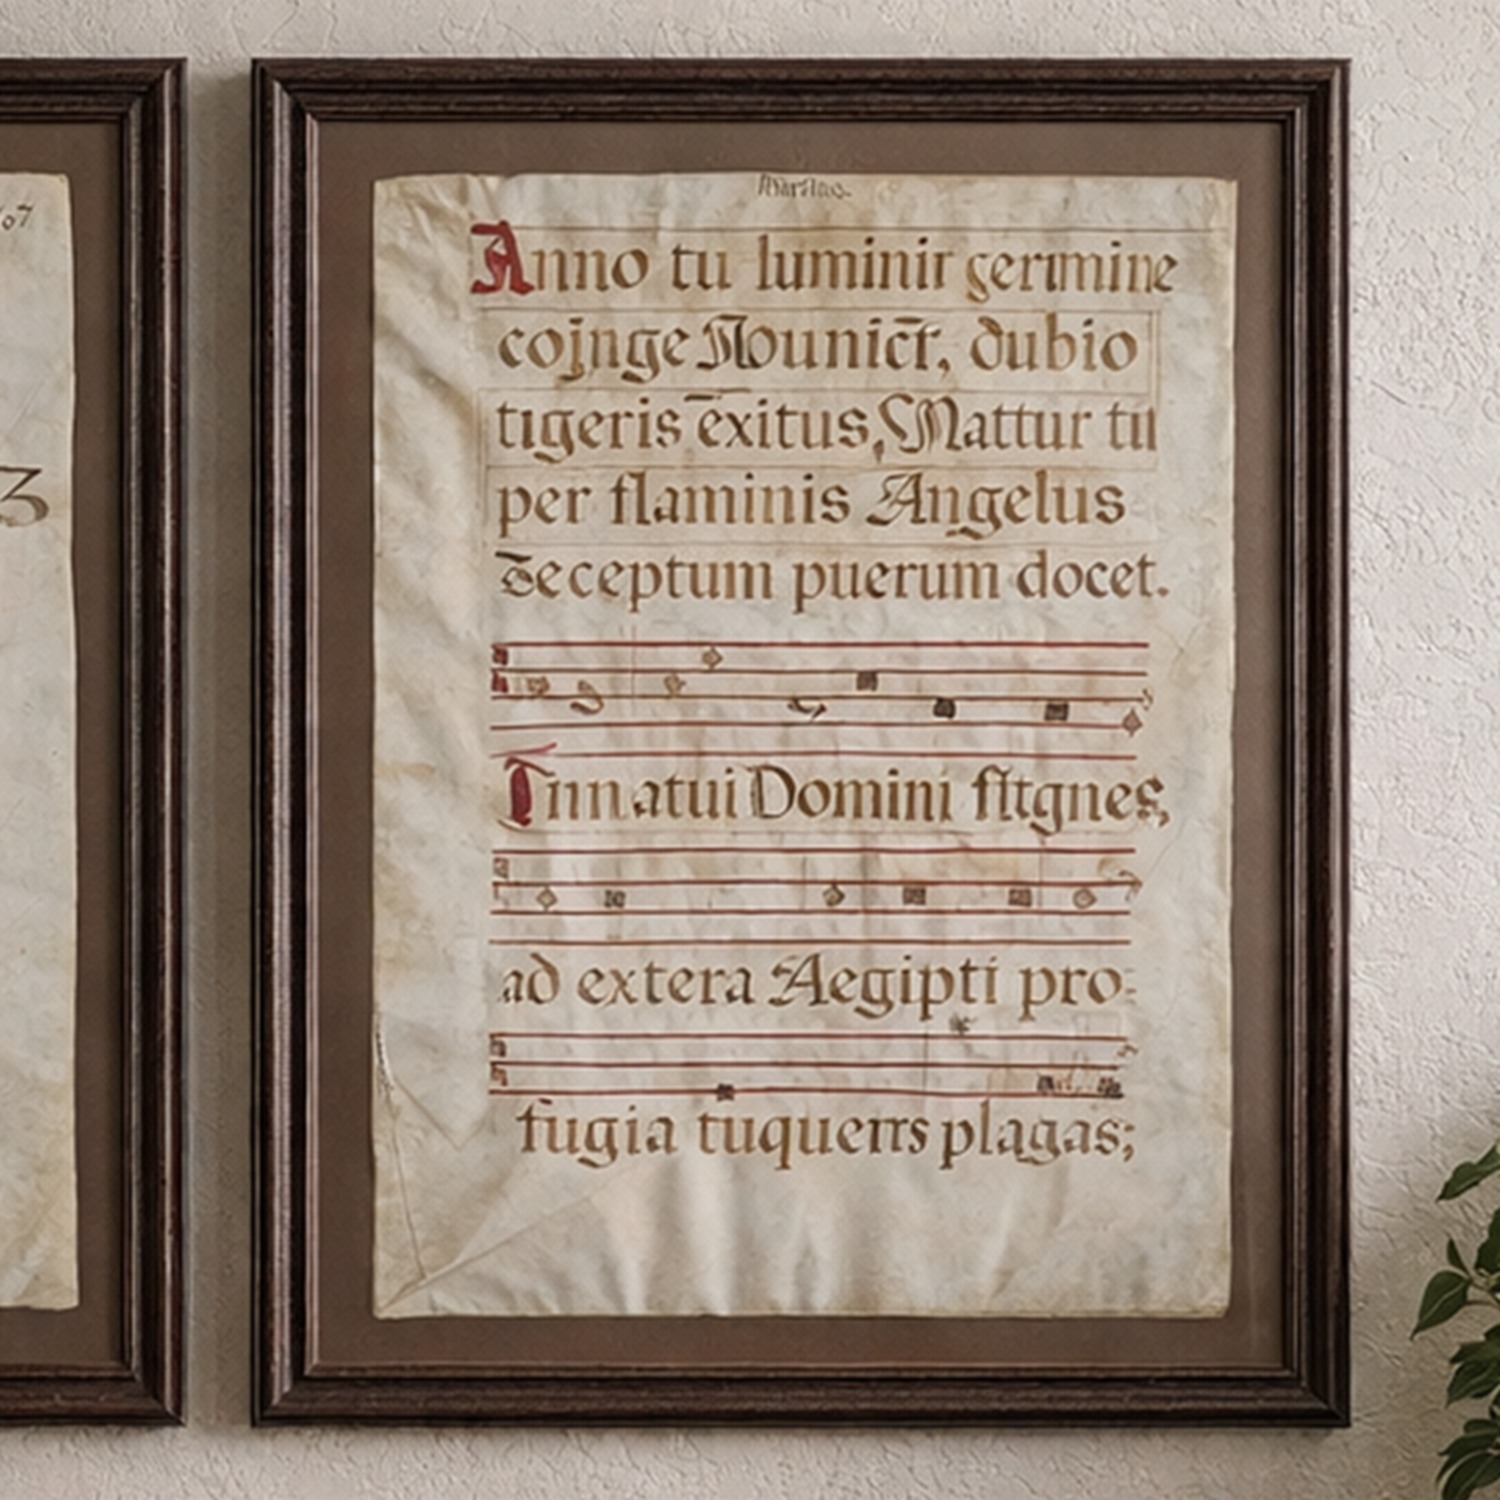 07
3
Anno tu luminir gerimine
cojnge Nounict, dubio
tigeris exitus, Mattur tu
per flaminis Angelus
deceptum puerum docet.
Tnnatui Domini fltgnes,
ad extera Aegipti pro-
fugia tuquerrs plagas;